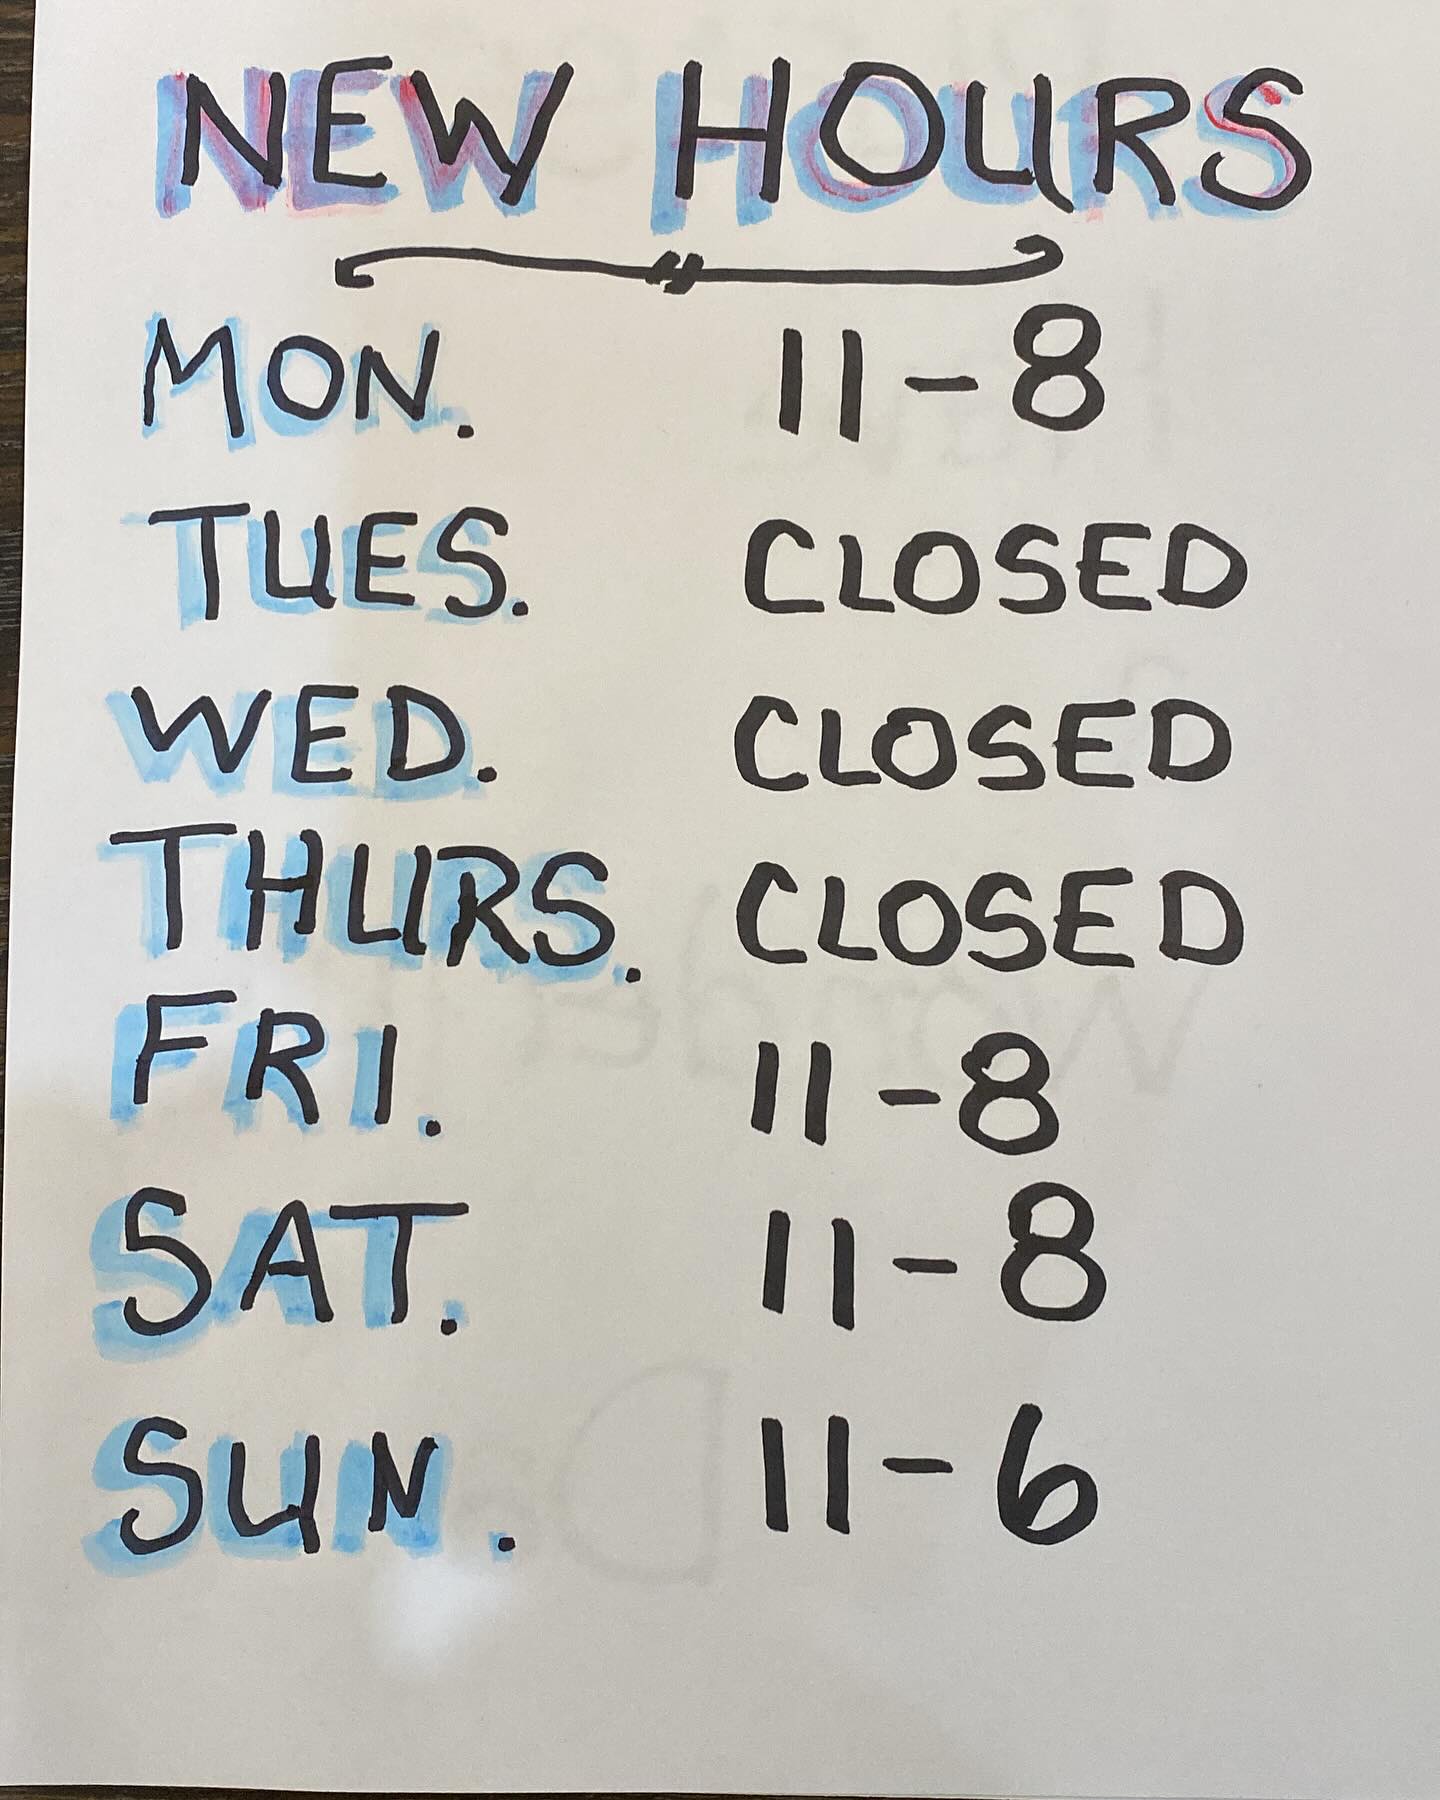 NEW HOURS
MON. 11-8
TUES. CLOSED
WED. CLOSED
THURS. CLOSED
FRI. 11-8
SAT. 11-8
SUN. 11-6